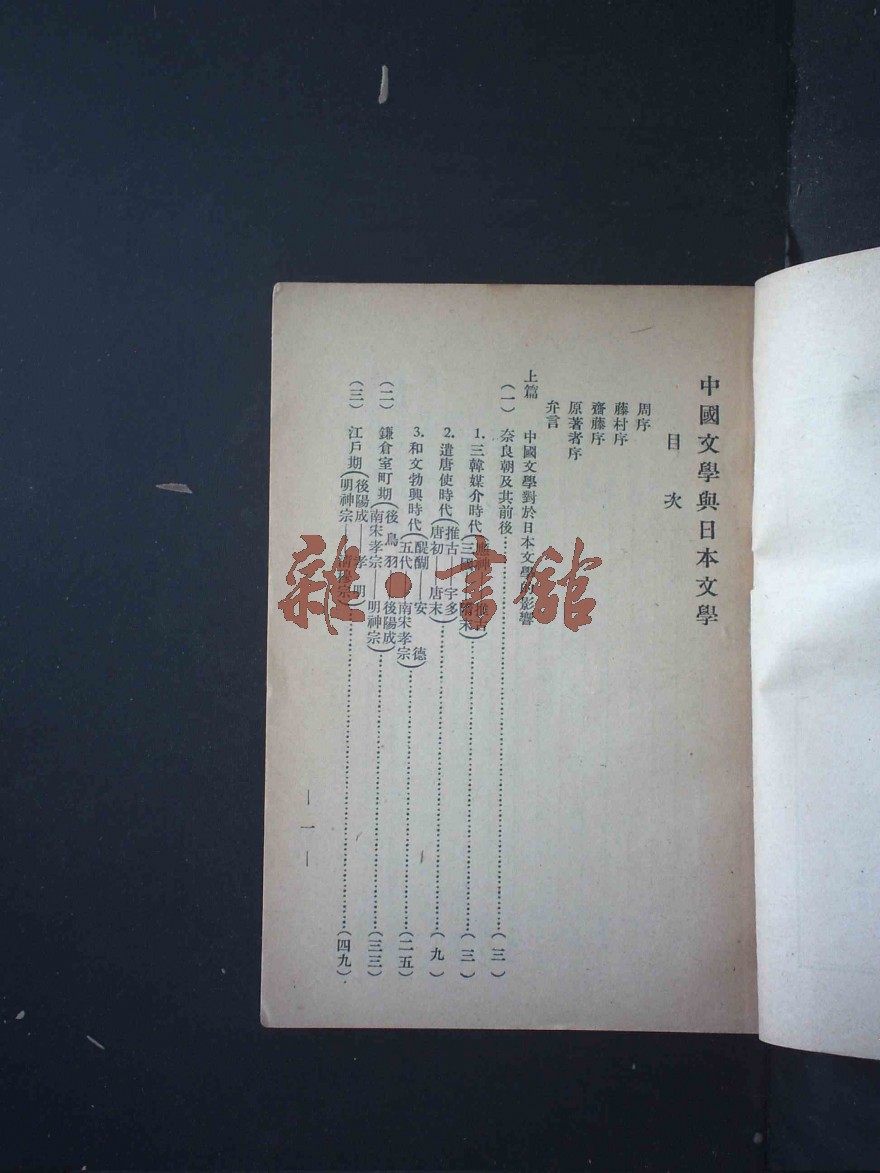 中國文學與日本文學
目次
周序
藤村序
齋藤序
原著者序
弁言
上篇 中國文學對於日本文學的影響
(一) 奈良朝及其前後……(三)
1. 三韓媒介時代(應神——推古 三國——隋末)……(三)
2. 遣唐使時代(推古——宇多 唐初——唐末)……(九)
3. 和文勃興時代(醍醐——安德 五代——南宋孝宗)……(二五)
(二) 鎌倉室町期(後鳥羽——後陽成 南宋孝宗——明神宗)……(三三)
(三) 江戶期(後陽成——孝明 明神宗——清穆宗)……(四九)
— 一 —
雜·書館